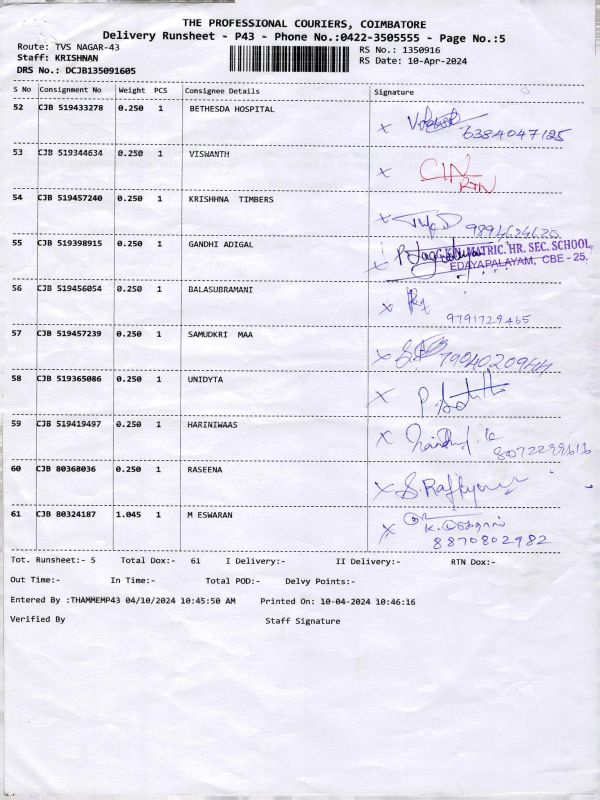 THE PROFESSIONAL COURIERS, COIMBATORE
Delivery Runsheet - P43 - Phone No.:0422-3505555 - Page No.:5
Route: TVS NAGAR-43
RS No.: 1350916
Staff: KRISHNAN
RS Date: 10-Apr-2024
DRS No.: DCJB135091605
S No Consignment No Weight PCS Consignee Details Signature
52 CJB 519433278 0.250 1 BETHESDA HOSPITAL
6384047125
53 CJB 519344634 0.250 1 VISWANTH
RTN
54 CJB 519457240 0.250 1 KRISHHNA TIMBERS
9894624620
55 CJB 519398915 0.250 1 GANDHI ADIGAL
MATRIC. HR. SEC. SCHOOL,
EDAYAPALAYAM, CBE - 25.
56 CJB 519456054 0.250 1 BALASUBRAMANI
9791729465
57 CJB 519457239 0.250 1 SAMUDKRI MAA
58 CJB 519365086 0.250 1 UNIDYTA
59 CJB 519419497 0.250 1 HARINIWAAS
60 CJB 80368036 0.250 1 RASEENA
61 CJB 80324187 1.045 1 M ESWARAN
8870802982
Tot. Runsheet:- 5 Total Dox:- 61 I Delivery:- II Delivery:- RTN Dox:-
Out Time:- In Time:- Total POD:- Delvy Points:-
Entered By :THAMMEMP43 04/10/2024 10:45:50 AM Printed On: 10-04-2024 10:46:16
Verified By Staff Signature